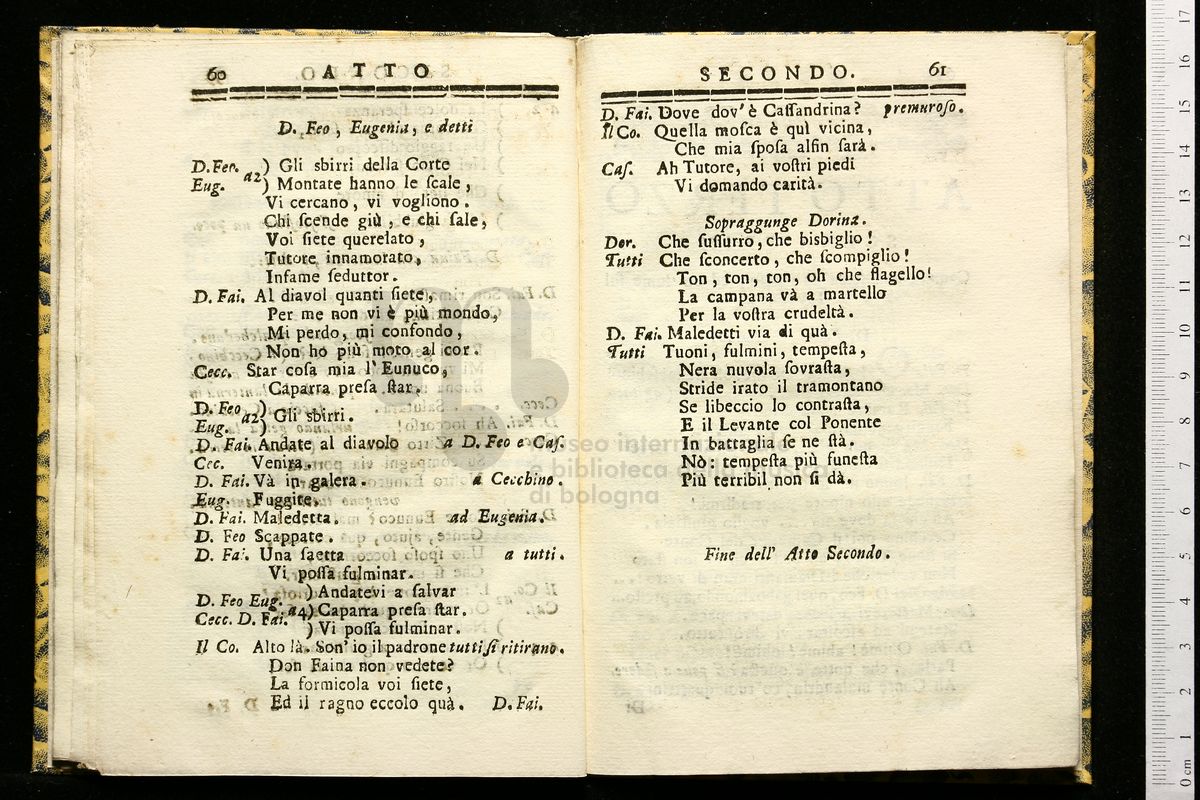 60 ATTO
D. Feo, Eugenia, e detti
D. Feo. ) Gli sbirri della Corte
Eug. a2) Montate hanno le ſcale,
Vi cercano, vi vogliono.
Chi ſcende giù, e chi ſale,
Voi ſiete querelato,
Tutore innamorato,
Infame ſeduttor.
D. Fai. Al diavol quanti ſiete,
Per me non vi è più mondo,
Mi perdo, mi confondo,
Non ho più moto al cor.
Cecc. Star coſa mia l'Eunuco,
Caparra preſa ſtar.
D. Feo )
Eug. a2) Gli sbirri.
D. Fai. Andate al diavolo a D. Feo e Caſ.
Cec. Venira.
D. Fai. Và in galera. a Cecchino.
Eug. Fuggite.
D. Fai. Maledetta. ad Eugenia.
D. Feo Scappate.
D. Fai. Una ſaetta a tutti.
Vi poſſa fulminar.
)Andatevi a ſalvar
D. Feo Eug.
Cecc. D. Fai. a4) Caparra preſa ſtar.
) Vi poſſa fulminar.
Il Co. Alto là. Son' io il padrone tutti ſi ritirano.
Don Faina non vedete?
La formicola voi ſiete,
Ed il ragno eccolo quà. D. Fai.
SECONDO. 61
D. Fai. Dove dov' è Caſſandrina? premuroſo.
Il Co. Quella moſca è quì vicina,
Che mia ſpoſa alfin ſarà.
Caſ. Ah Tutore, ai voſtri piedi
Vi domando carità.
Sopraggunge Dorina.
Dor. Che ſuſurro, che bisbiglio!
Tutti Che ſconcerto, che ſcompiglio!
Ton, ton, ton, oh che flagello!
La campana và a martello
Per la voſtra crudeltà.
D. Fai. Maledetti via di quà.
Tutti Tuoni, fulmini, tempeſta,
Nera nuvola ſovraſta,
Stride irato il tramontano
Se libeccio lo contraſta,
E il Levante col Ponente
In battaglia ſe ne ſtà.
Nò: tempeſta più funeſta
Più terribil non ſi dà.
Fine dell' Atto Secondo.